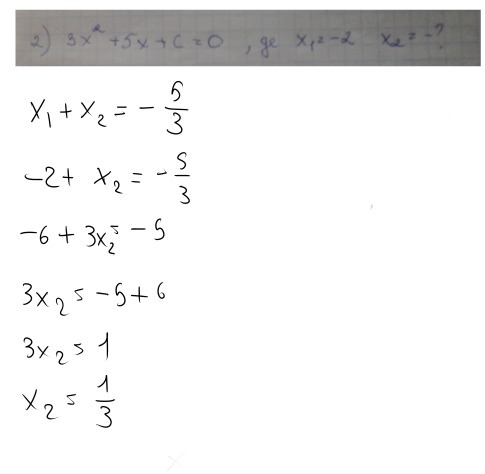 2) 3x² + 5x + C = 0 , де x₁ = -2 x₂ = -?
x₁ + x₂ = - 5/3
-2 + x₂ = - 5/3
-6 + 3x₂ = -5
3x₂ = -5 + 6
3x₂ = 1
x₂ = 1/3